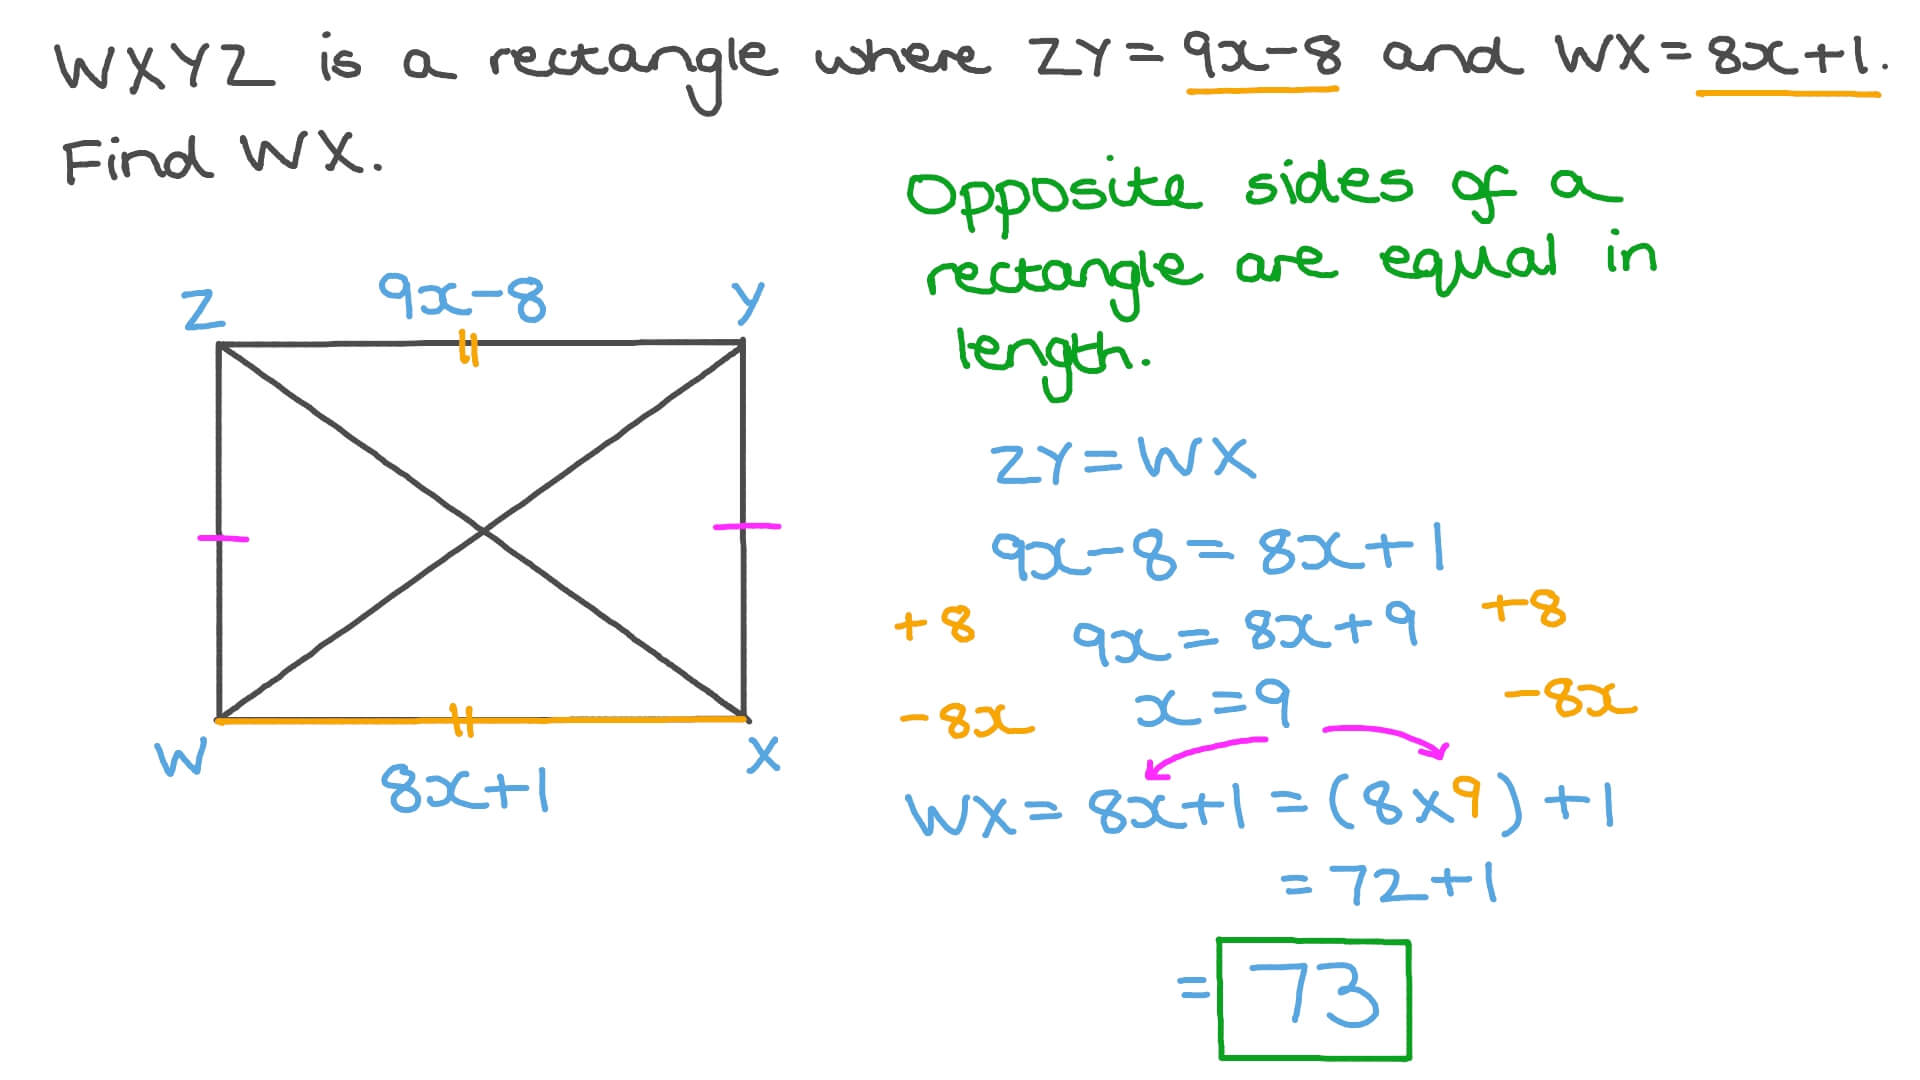 WXYZ is a rectangle where ZY=9x-8 and WX=8x+1.
Find WX.
Opposite sides of a
rectangle are equal in
length.
Z 9x-8 Y
W 8x+1 X
ZY=WX
9x-8=8x+1
+8 9x=8x+9 +8
-8x x=9 -8x
WX=8x+1=(8x9)+1
=72+1
=73